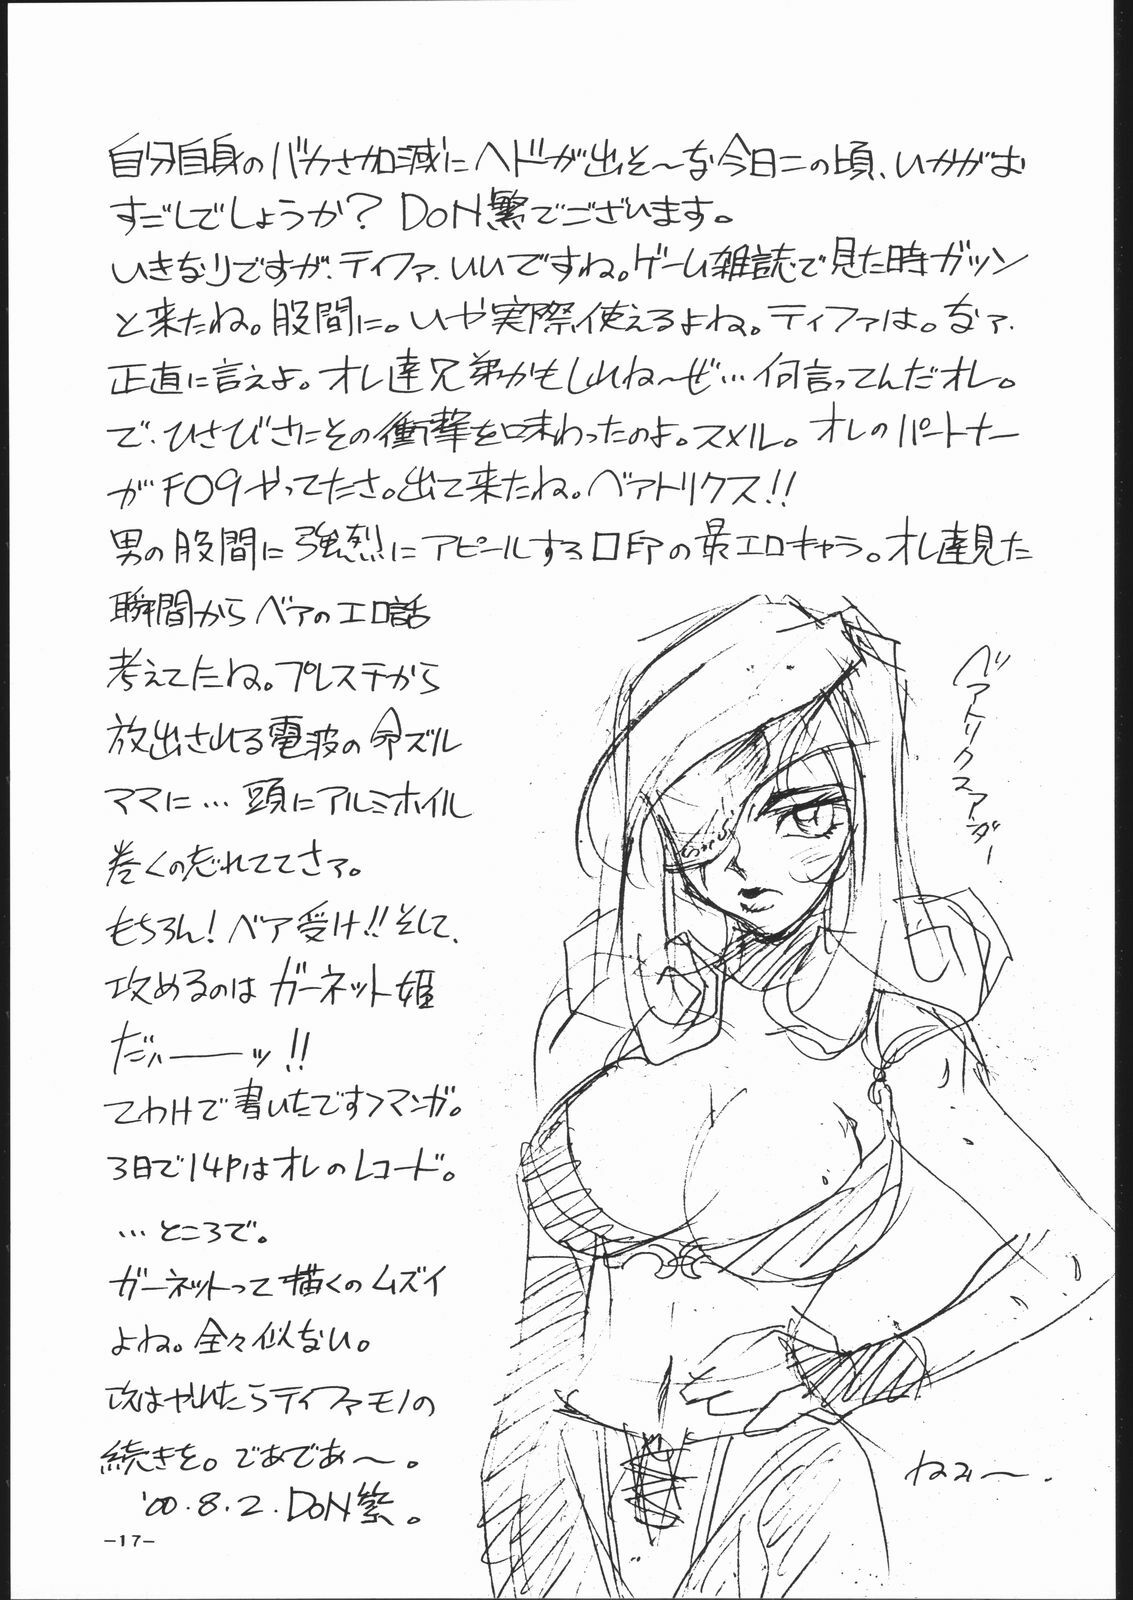 自分自身のバカさ加減にヘドーが出そ～な今日この頃、いかがお
すごしでしょうか？DoN繁でございます。
いきなりですが、ティファ、いいですね。ゲーム雑誌で見た時ガツン
と来たね。股間に。いや実際、使えるよね。ティファは。なァ、
正直に言えよ。オレ達兄弟かもしれね～ぜ…何言ってんだオレ。
で、ひさびさにその衝撃を味わったのよ。スメル。オレのパートナー
がFO9やってたさ。出て来たね。ベアトリクス!!
男の股間に強烈にアピールする口印の最エロキャラ。オレ達見た
瞬間からベアのエロ話
考えてたね。プレステから
放出される電波の命ズル
ママに…頭にアルミホイル
巻くの忘れててさァ。
もちろん！ベア受け!!そして、
攻めるのはガーネット姫
だハーーッ!!
てわけで書いたですフマンガ。
3日で14Pはオレのレコード。
…ところで。
ガーネットって描くのムズイ
よね。全々似ない。
次はやれたらティファモノの
続きを。であであ～。
'00.8.2.DoN繁。
-17-
ベアトリクスアンダー
ねみ～.